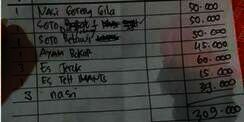 1 NASI Goreng Gila 50.000
1 SOTO 50.000
1 SOTO Betawi 50.000
1 Ayam Bakar 45.000
Es Teler 60.000
Es TEH MANIS 15.000
3 nasi
309.000